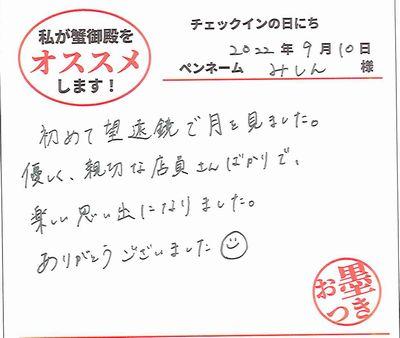 私が蟹御殿を
オススメ
します！
チェックインの日にち
2022年9月10日
ペンネーム みしん 様
初めて望遠鏡で月を見ました。
優しく、親切な店員さんばかりで、
楽しい思い出になりました。
ありがとうございました
お墨つき